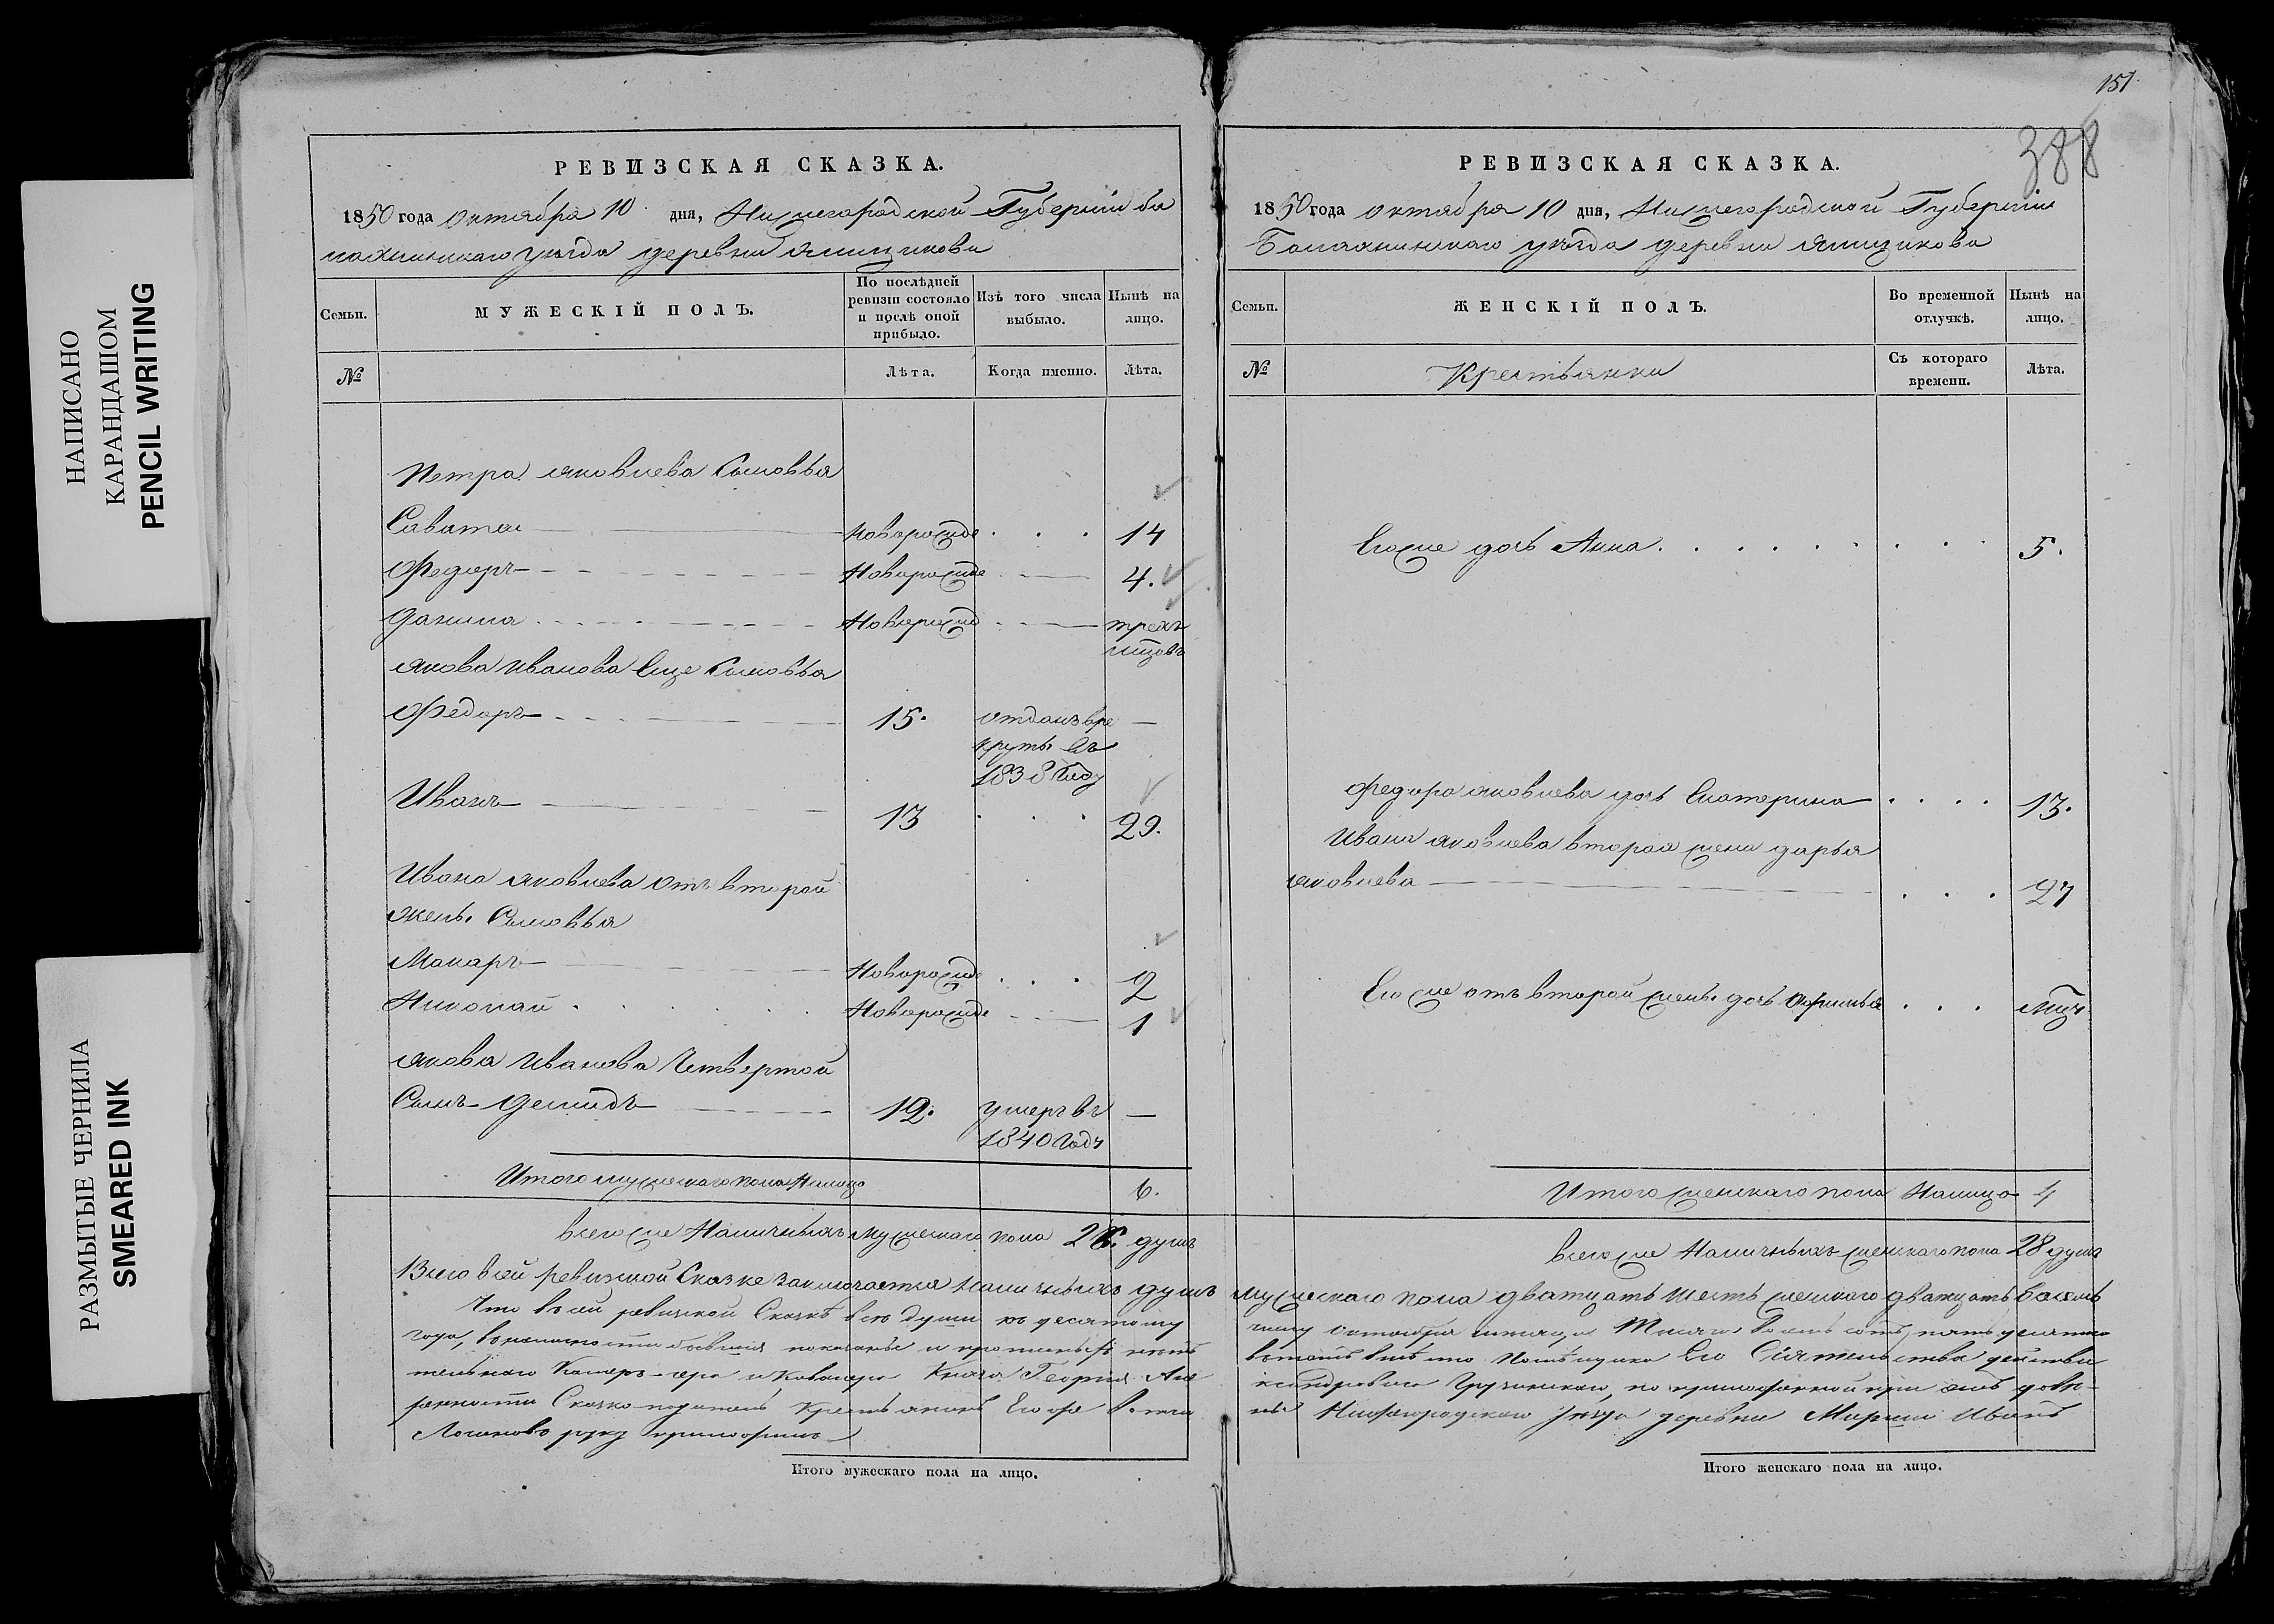 НАПИСАНО
КАРАНДАШОМ
PENCIL WRITING
РАЗМЫТЫЕ ЧЕРНИЛА
SMEARED INK
РЕВИЗСКАЯ СКАЗКА.
1850 года октября 10 дня, Нижегородской Губернии ба
лахнинскаго уезда деревни Ямщикова
Семьи.
МУЖЕСКІЙ ПОЛЪ.
По послѣдней ревизіи состояло и послѣ оной прибыло.
Изъ того числа выбыло.
Нынѣ на лицо.
№
Лѣта.
Когда именно.
Лѣта.
Петра яковлева Сыновья
Саватей новорожде 14
Федоръ Новорожде 4.
Данила Новорожд трехъ
яковa Иванова Еще Сыновья
Федоръ 15. отданъ вре
круты въ
1838 Году
Иванъ 13 29.
Ивана яковлева отъ второй
жены Сыновья
Макаръ Новорожд 2
Николай Новорожде 1
якова Иванова Четвертой
Сынъ Демидъ 12. умеръ въ
1840 Годъ
Итого мужескаго пола Налицо 6.
всего же Наличныхъ мужескаго пола 26. душъ
Итого мужескаго пола на лицо.
151
388
РЕВИЗСКАЯ СКАЗКА.
1850 года октября 10 дня, Нижегородской Губернии
Балахнинскаго уезда деревни Ямщикова
Семьи.
ЖЕНСКІЙ ПОЛЪ.
Во временной отлучкѣ.
Нынѣ на лицо.
№
Крестьянки
Съ котораго времени.
Лѣта.
Егоже дочь Анна 5.
Федора яковлева дочь Екатерина 13.
Ивана яковлева вторая жена дарья
яковлева 27
Его же отъ второй жены дочь
Итого женскаго пола Налицо 4
всего же Наличныхъ женскаго пола 28 душъ
Всего в сей ревизской Сказке заключается наличныхъ душъ мужескаго пола дватцать шесть женскаго дватцать восемь
Что въ сей ревизской Сказкѣ всѣ души къ десятому числу октября тысяча восемь сотъ пятьдесятаго
года, въ наличности бывшія показаны и пропи нѣтъ въ томъ помѣщика Его Сіятельства действи
тельнаго Камеръ-гера и Кавалера Князя Георгия Але ксандровича Грузинскаго, по при довѣ-
ренности Сказко-податель крестьянинъ Егоръ Нижегородскаго уезда деревни Иванъ
руку приложилъ
Итого женскаго пола на лицо.